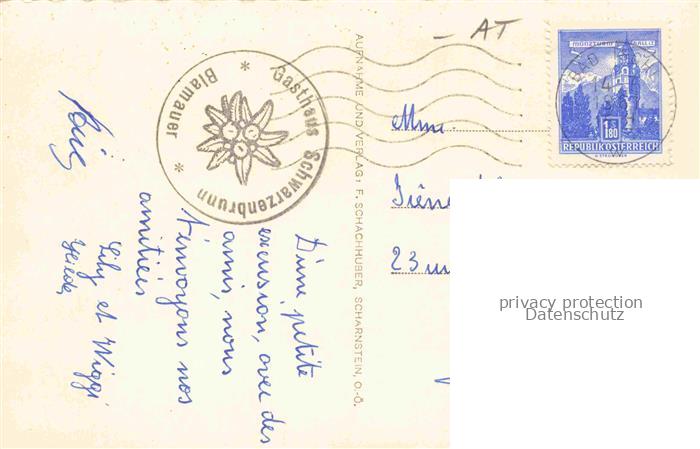 D'une petite
excursion, avec des
amis, nous
t'envoyons nos
amitiés
Lily et Wiggi
Gasthaus Schwarzenbrunn
* Blamauer *
AUFNAHME UND VERLAG: F. SCHACHHUBER, SCHARNSTEIN, O.-Ö.
- AT
MÜNZTURM HALL
1.80
REPUBLIK ÖSTERREICH
Mme.
23
privacy protection
Datenschutz